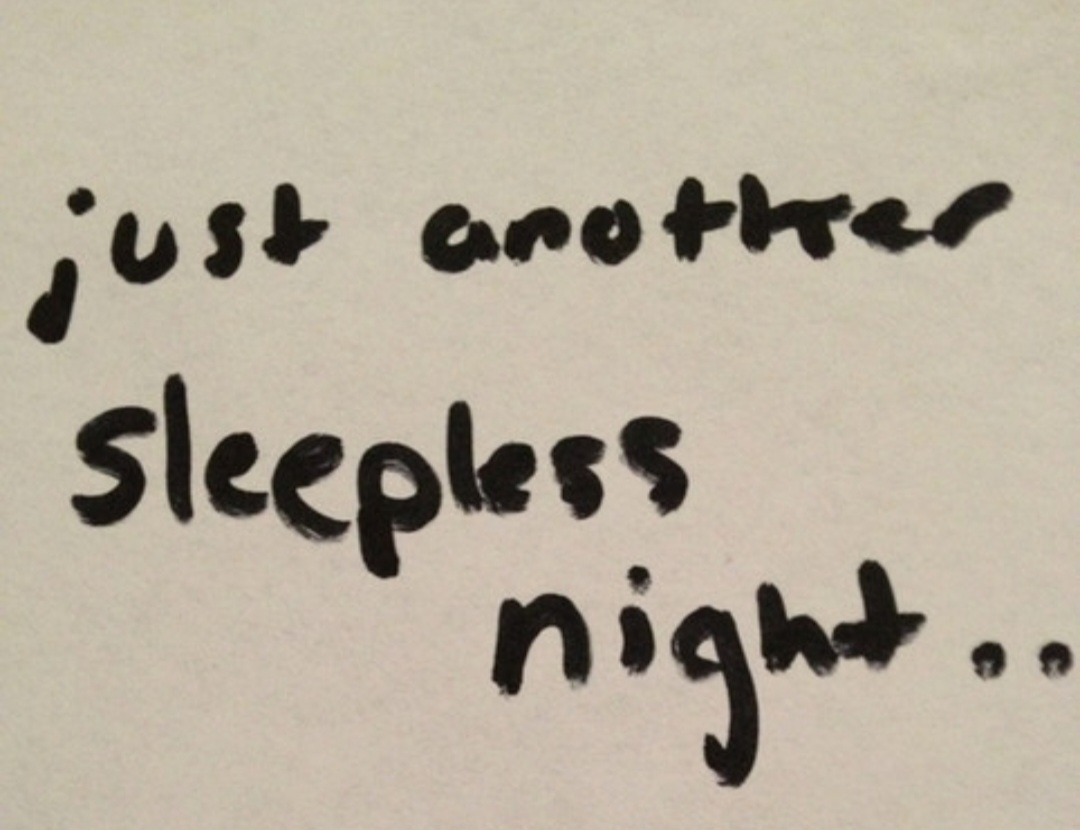 just another
sleepless
night..